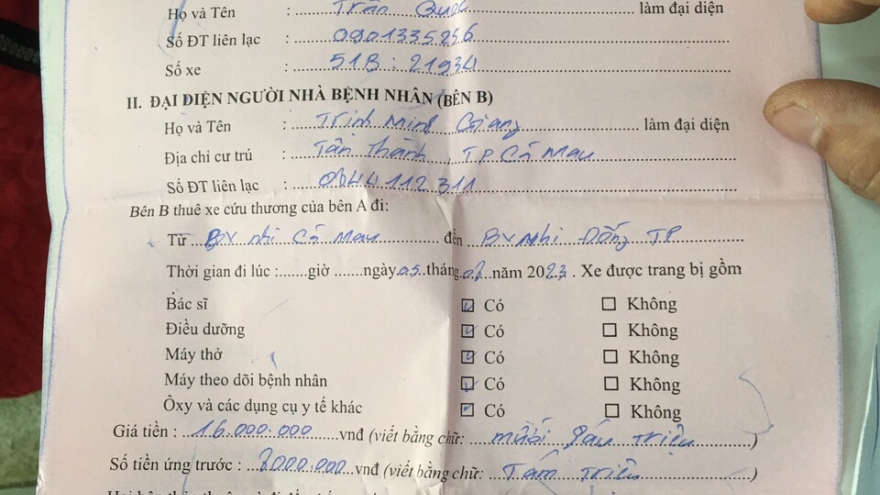 Họ và Tên : Trần Quốc làm đại diện
Số ĐT liên lạc : 0901335256
Số xe : 51B : 21934
II. ĐẠI DIỆN NGƯỜI NHÀ BỆNH NHÂN (BÊN B)
Họ và Tên : Trịnh Minh Giang làm đại diện
Địa chỉ cư trú : Tân Thành, T.P Cà Mau
Số ĐT liên lạc : 0844.112.311
Bên B thuê xe cứu thương của bên A đi:
Từ BV nhi Cà Mau đến BV Nhi Đồng TP
Thời gian đi lúc :......giờ .......ngày 05 tháng 02 năm 2023 . Xe được trang bị gồm
Bác sĩ ☑ Có ☐ Không
Điều dưỡng ☑ Có ☐ Không
Máy thở ☑ Có ☐ Không
Máy theo dõi bệnh nhân ☑ Có ☐ Không
Ôxy và các dụng cụ y tế khác ☑ Có ☐ Không
Giá tiền : 16.000.000 vnđ (viết bằng chữ: mười sáu Triệu)
Số tiền ứng trước : 8000.000 vnđ (viết bằng chữ: Tám Triệu)